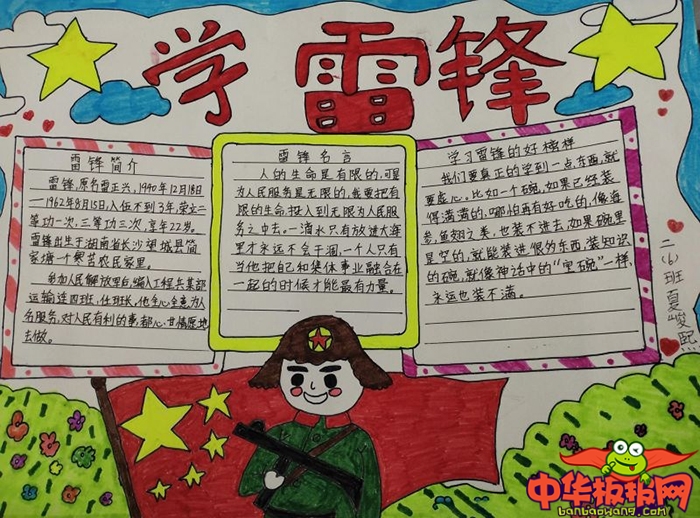 学雷锋
雷锋简介
雷锋,原名雷正兴,1940年12月18日
—1962年8月15日,入伍不到3年,荣立二
等功一次,三等功三次,享年22岁。
雷锋出生于湖南省长沙望城县简
家塘一个贫苦农民家里。
参加人民解放军后,编入工程兵某部
运输连四班,任班长,他全心全意为人
民服务,对人民有利的事,都心甘情愿地
去做。
雷锋名言
人的生命是有限的,可是
为人民服务是无限的,我要把有
限的生命投入到无限为人民服
务之中去。一滴水只有放进大海
里才永远不会干涸,一个人只有
当他把自己和集体事业融合在
一起的时候才能最有力量。
学习雷锋的好榜样
我们要真正的学到一点东西,就
要虚心。比如一个碗,如果已经装
得满满的,哪怕再有好吃的,像海
参,鱼翅之类,也装不进去,如果碗里
是空的,就能装进很多东西,装知识
的碗,就像神话中的“宝碗”一样,
永远也装不满。
二(6)班夏峻熙
中华板报网
banbaowang.com